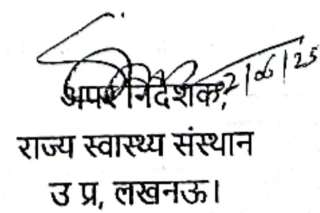 2/06/25
अपर निर्देशक,
राज्य स्वास्थ्य संस्थान
उ प्र, लखनऊ।